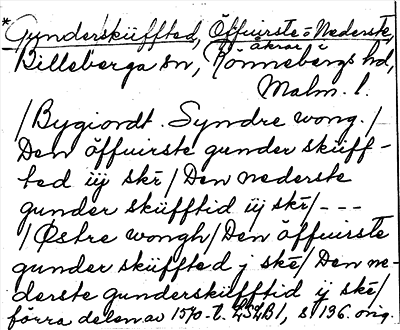 *Gunderskiüffted, Öffuirste = Nederste,
åkrar i
Billeberga sn, Rönnebergs hd,
Malm. l.
/Bygiordt. Syndre wong./
Den öffuirste gunder skiüff-
ted iij skr/ Den nederste
gunder skiüfftid iij skr/---
/Østre wongh/ Den öffuirste
gunder skiüffted j skr/ Den ne-
derste gunderskiüfftid ij skr/
förra delen av 1570-t. LSLB1, s 136. orig.